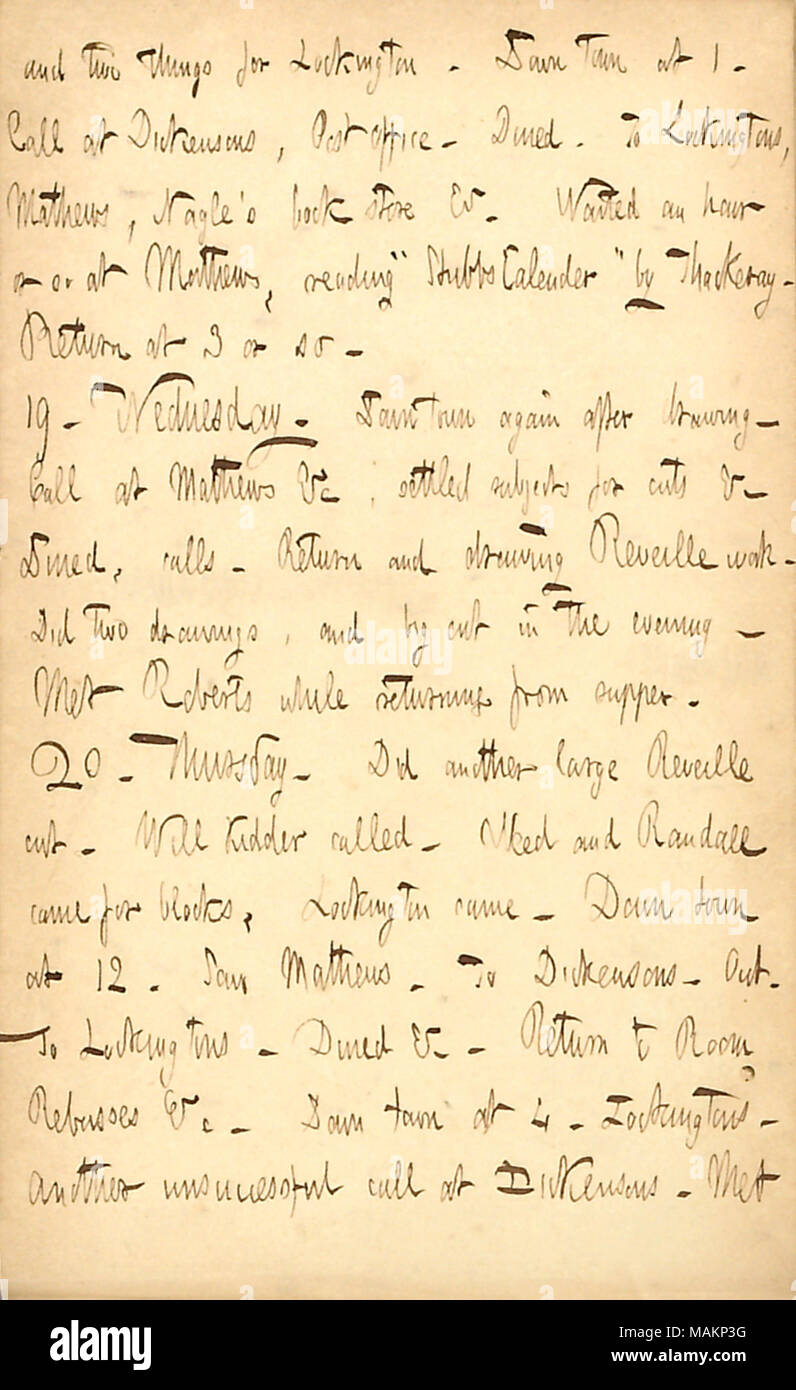 and two things for Lockington. Down Town at 1.
Call at Dickensons, Post Office. Dined. To Lockingtons,
Mathews, Nagle's book store &c. Waited an hour
or so at Mathews, reading "Stubbs Calender" by Thackeray.
Return at 3 or so.
19. Wednesday. Down town again after drawing.
Call at Mathews &c, settled subjects for cuts &c
Dined, calls. Return and drawing Reveille work.
Did two drawings, and big cut in the evening.
Met Roberts while returning from supper.
20. Thursday. Did another large Reveille
cut. Will Kidder called. Sked and Randall
came for blocks, Lockington came. Down town
at 12. Saw Mathews. To Dickensons. Out.
To Lockingtons. Dined &c. Return to Room,
Rebusses &c. Down town at 4. Lockingtons.
Another unsuccessful call at Dickensons. Met
alamy
Image ID: MAKP3G
www.alamy.com